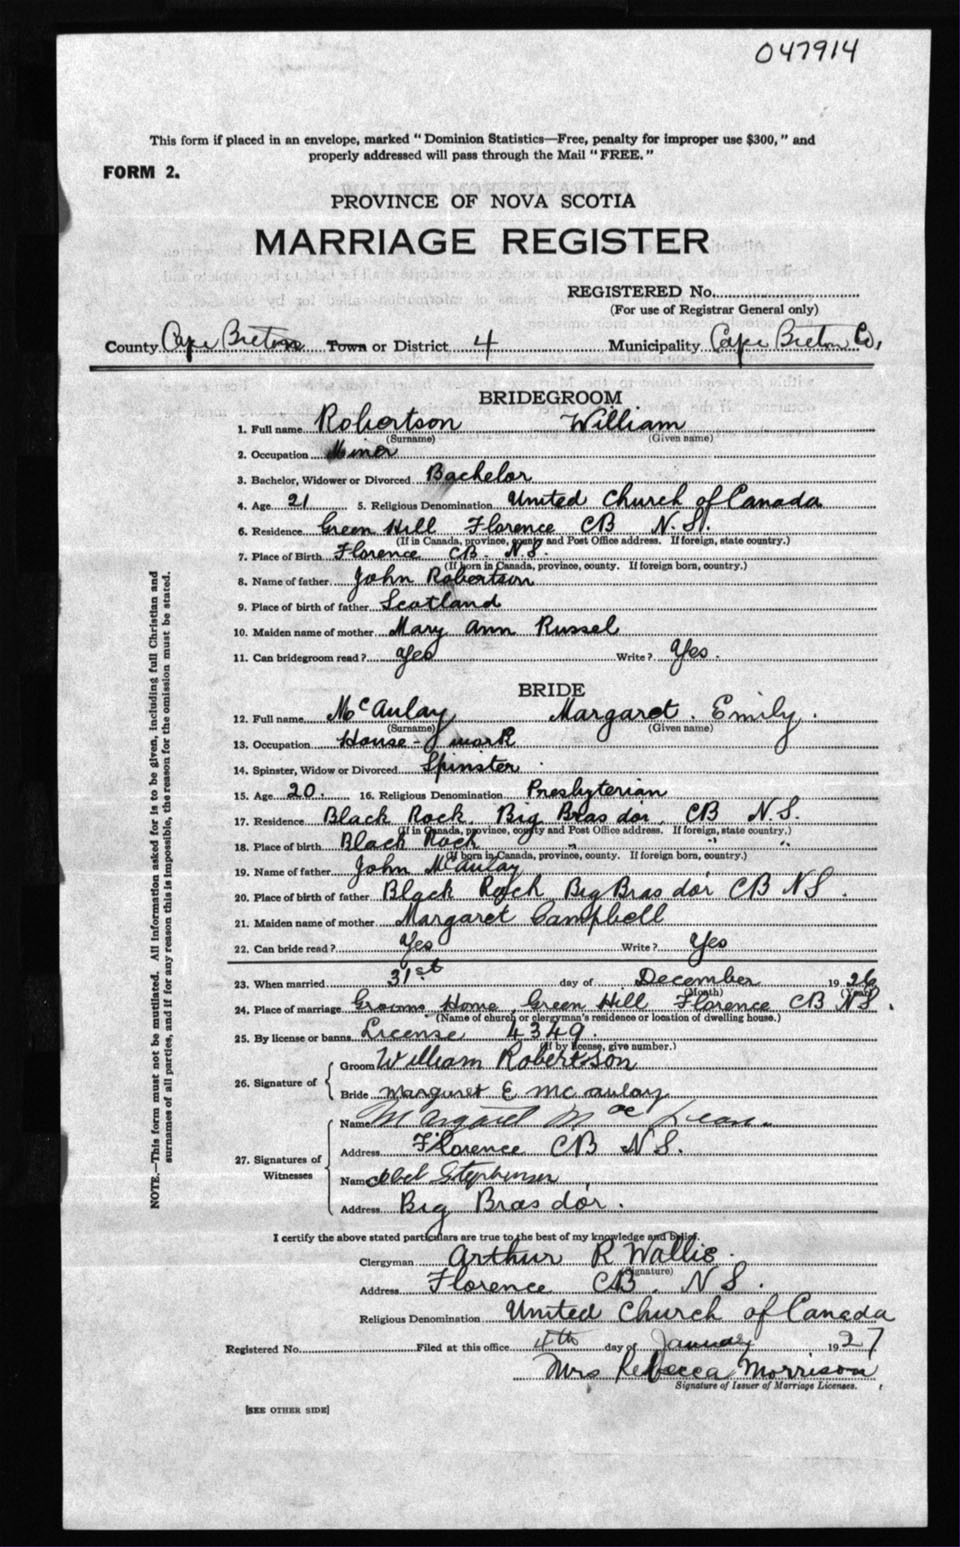 047914
This form if placed in an envelope, marked "Dominion Statistics—Free, penalty for improper use $300," and
properly addressed will pass through the Mail "FREE."
FORM 2.
PROVINCE OF NOVA SCOTIA
MARRIAGE REGISTER
REGISTERED No.
(For use of Registrar General only)
County Cape Breton Town or District 4 Municipality Cape Breton Co,
BRIDEGROOM
1. Full name Robertson William
(Surname) (Given name)
2. Occupation Miner
3. Bachelor, Widower or Divorced Bachelor
4. Age 21 5. Religious Denomination United Church of Canada
6. Residence Green Hill Florence CB N.S.
(If in Canada, province, county and Post Office address. If foreign, state country.)
7. Place of Birth Florence CB. N.S.
(If born in Canada, province, county. If foreign born, country.)
8. Name of father John Robertson
9. Place of birth of father Scotland
10. Maiden name of mother Mary Ann Russel
11. Can bridegroom read? Yes Write? Yes.
BRIDE
12. Full name McAulay Margaret. Emily.
(Surname) (Given name)
13. Occupation House-work
14. Spinster, Widow or Divorced Spinster
15. Age 20. 16. Religious Denomination Presbyterian
17. Residence Black Rock. Big Bras dor. CB N.S.
(If in Canada, province, county and Post Office address. If foreign, state country.)
18. Place of birth Black Rock " " "
(If born in Canada, province, county. If foreign born, country.)
19. Name of father John McAulay
20. Place of birth of father Black Rock Big Bras dor CB NS.
21. Maiden name of mother Margaret Campbell
22. Can bride read? Yes Write? Yes
23. When married 31st day of December 1926
(Month) (Year)
24. Place of marriage Grooms Home, Green Hill Florence CB NS.
(Name of church or clergyman's residence or location of dwelling house.)
25. By license or banns License 4349.
(If by license, give number.)
26. Signature of
Groom William Robertson
Bride Margaret E McAulay
27. Signatures of Witnesses
Name Margaret Mac Lean
Address Florence CB N.S.
Name Stephenson
Address Big Bras dor.
I certify the above stated particulars are true to the best of my knowledge and belief.
Clergyman Arthur R Wallis.
(Signature)
Address Florence CB. N S.
Religious Denomination United Church of Canada
Registered No. Filed at this office 4th day of January 1927
Mrs Rebecca Morrison
Signature of Issuer of Marriage Licenses.
[SEE OTHER SIDE]
NOTE.—This form must not be mutilated. All information asked for is to be given, including full Christian and
surnames of all parties, and if for any reason this is impossible, the reason for the omission must be stated.